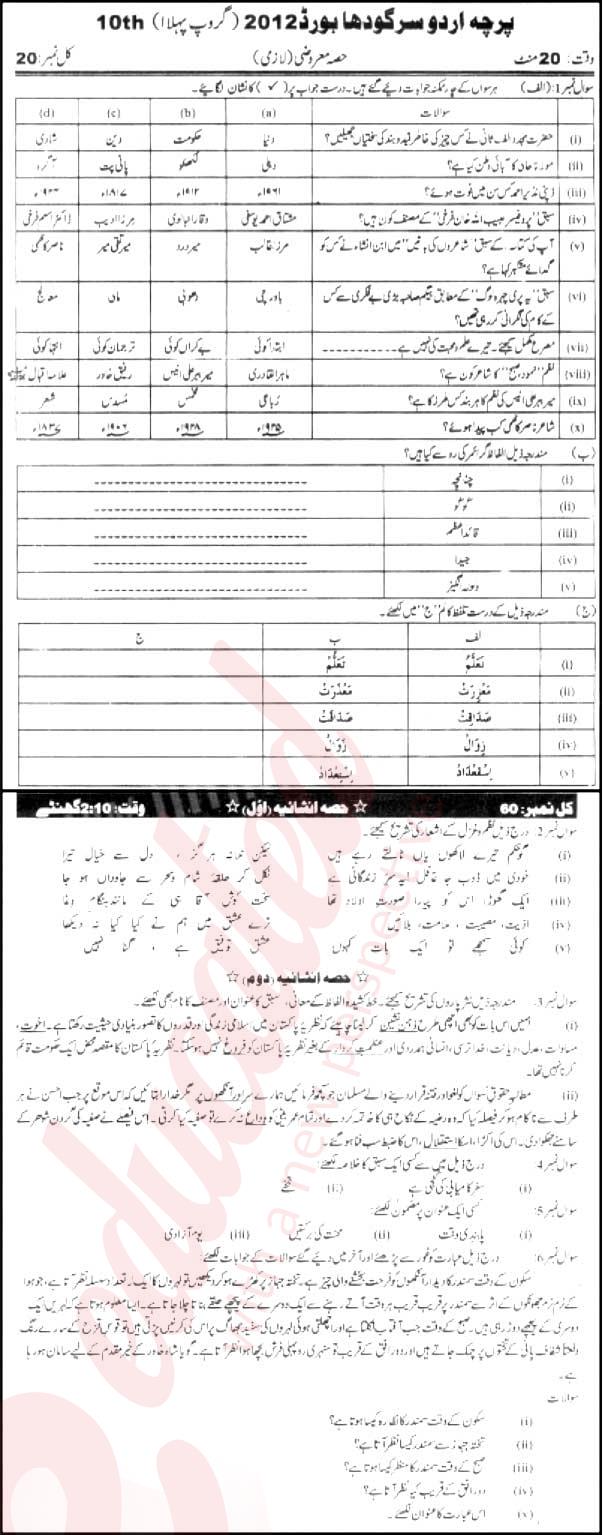 پرچہ اردو سرگودھا بورڈ 2012 (گروپ پہلا) 10th
وقت: 20 منٹ حصہ معروضی (لازمی) کل نمبر: 20
سوال نمبر 1: (الف) ہر سوال کے چار ممکنہ جوابات دیئے گئے ہیں۔ درست جواب پر (✓) کا نشان لگایئے۔
سوالات (a) (b) (c) (d)
(i) حضرت مجدد الف ثانی نے کس چیز کی خاطر قید و بند کی سختیاں جھیلیں؟ دنیا حکومت دین شادی
(ii) مولانا حالی کا آبائی وطن کیا ہے؟ دہلی لکھنؤ پانی پت آگرہ
(iii) ڈپٹی نذیر احمد کس سن میں فوت ہوئے؟ ۱۹۶۱ء ۱۹۱۲ء ۱۸۱۷ء
(iv) سبق "پروفیسر حبیب اللہ خان غرضی" کے مصنف کون ہیں؟ مشتاق احمد یوسفی وقار انبالوی مرزا ادیب ڈاکٹر اسلم فرخی
(v) آپ کی کتاب کے سبق "شاعروں کی باتیں" میں ابن انشاء نے کس کو گدائے متکبر کہا ہے؟ مرزا غالب میر درد میر تقی میر ناصر کاظمی
(vi) سبق "یہ پری چہرہ لوگ" کے مطابق بیگم صاحبہ بڑی بے فکری سے کس کے کام کی نگرانی کر رہی تھیں؟ باورچی دھوبی مالی معالج
(vii) مصرع مکمل کیجئے۔ تیرے علم و محبت کی نہیں ہے ---------- ابتدا کوئی بے کراں کوئی ترجمان کوئی انتہا کوئی
(viii) نظم "نمود صبح" کا شاعر کون ہے؟ ماہر القادری میر ببر علی انیس رفیق خاور علامہ اقبال
(ix) میر ببر علی انیس کی نظم کا ہر بند کس طرز کا ہے؟ رباعی مخمس مسدس شعر
(x) شاعر ناصر کاظمی کب پیدا ہوئے؟ ۱۹۲۵ء ۱۹۲۸ء ۱۹۰۶ء ۱۸۳۷ء
(ب) مندرجہ ذیل الفاظ گرائمر کی رو سے کیا ہیں؟
(i) چونچہ
(ii)
(iii) قائد اعظم
(iv) جیدا
(v)
(ج) مندرجہ ذیل کے درست تلفظ کالم "ج" میں لکھئے۔
الف ب ج
(i) تعلّم تعلّم
(ii) معزرت معذرت
(iii) صداقت صداقت
(iv) زوال زوال
(v) استعداد استعداد
کل نمبر: 60 ☆ حصہ انشائیہ (اول) ☆ وقت: 2:10 گھنٹے
سوال نمبر 2: درج ذیل نظم و غزل کے اشعار کی تشریح کیجئے۔
(i) گو حکم تیرے لاکھوں یاں ٹالتے رہے ہیں لیکن ٹلا نہ ہرگز ، دل سے خیال تیرا
(ii) خودی میں ڈوب جا غافل یہ سر زندگانی ہے نکل کر حلقۂ شام و سحر سے جاوداں ہو جا
(iii) ایک گھوڑا، اس کو پیارا صورت اولاد تھا سخت کوش آقا ہی کے مانند ہنگام وغا
(iv) اذیت، مصیبت، ملامت، بلائیں ترے عشق میں ہم نے کیا کیا نہ دیکھا
(v) کوئی سمجھے تو ایک بات کہوں عشق توفیق ہے ، گناہ نہیں
☆ حصہ انشائیہ (دوم) ☆
سوال نمبر 3۔ مندرجہ ذیل نثر پاروں کی تشریح کیجئے۔ خط کشیدہ الفاظ کے معانی، سبق کا عنوان اور مصنف کا نام بھی لکھئے۔
(i) ہمیں اس بات کو بھی اچھی طرح ذہن نشین کر لینا چاہیے کہ نظریہ پاکستان میں اسلامی زندگی اور قدروں کا تصور بنیادی حیثیت رکھتا ہے۔ اخوت،
مساوات، عدل، دیانت، خدا ترسی، انسانی ہمدردی اور عظمت کردار کے بغیر نظریہ پاکستان کو فروغ نہیں ہو سکتا۔ نظریہ پاکستان کا مقصد محض ایک حکومت قائم
کرنا نہیں تھا۔
(ii) مطالبہ حقوق نسواں کو لغو اور فتنہ قرار دینے والے مسلمان جو چاہیں فرمائیں ہمارے سر اور آنکھوں پر مگر خدارا بتائیں کہ اس موقع پر جب احسن نے ہر
طرف سے ناکام ہو کر فیصلہ کیا کہ وہ رضیہ کے نکاح ہی کا خاتمہ کر دے اور تمام عمر بیٹی کو وداع نہ کرے تو صفیہ کیا کرتی۔ اس فیصلے نے صفیہ کی گردن شوہر کے
سامنے جھکوا دی۔ اس کی اکڑ، اس کا استقلال، اس کا ضبط سب فنا ہو گئے۔
سوال نمبر 4: درج ذیل میں سے کسی ایک سبق کا خلاصہ لکھئے:
(i) سفر کامیابی کی کنجی ہے (ii)
سوال نمبر 5: کسی ایک عنوان پر مضمون لکھئے:
(i) پابندی وقت (ii) محنت کی برکتیں (iii) یوم آزادی
سوال نمبر 6: درج ذیل عبارت کو غور سے پڑھئے اور آخر میں دیئے گئے سوالات کے جوابات لکھئے۔
سکون کے وقت سمندر کا دیدار آنکھوں کو فرحت بخشنے والی چیز ہے۔ تختہ جہاز پر کھڑے ہو کر دیکھیں تو لہروں کا ایک لاتعداد سلسلہ نظر آتا ہے، جو ہوا
کے نرم نرم جھونکوں کے اثر سے سمندر پر قریب قریب ہر وقت آتے رہنے سے ایک دوسرے کے پیچھے حلقے بناتا چلا جاتا ہے۔ ایسا معلوم ہوتا ہے کہ لہریں ایک
دوسری کے پیچھے دوڑ رہی ہیں۔ صبح کے وقت جب آفتاب نکلتا ہے اور اچھلتی ہوئی لہروں کی سفید جھاگ پر اس کی کرنیں پڑتی ہیں تو قوس قزح کے سارے رنگ
دفعتاً شفاف پانی کے تختوں پر چمک جاتے ہیں اور دور افق کے قریب تو سنہری روپہلی فرش بچھا ہوا نظر آتا ہے۔ گویا شاہ خاور کے خیر مقدم کے لیے سامان ہو رہا
ہے۔
سوالات
(i) سکون کے وقت سمندر کا نظارہ کیسا ہوتا ہے؟
(ii) تختہ جہاز سے سمندر کیسا نظر آتا ہے؟
(iii) صبح کے وقت سمندر کا منظر کیسا ہوتا ہے؟
(iv) دور افق کے قریب کیا نظر آتا ہے؟
(v) اس عبارت کا عنوان لکھئے۔